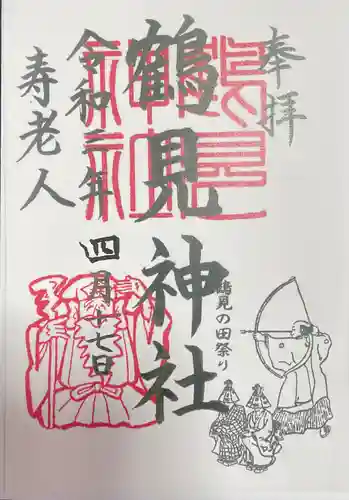 奉拝
鶴見神社
令和三年
四月十七日
寿老人
鶴見の田祭り